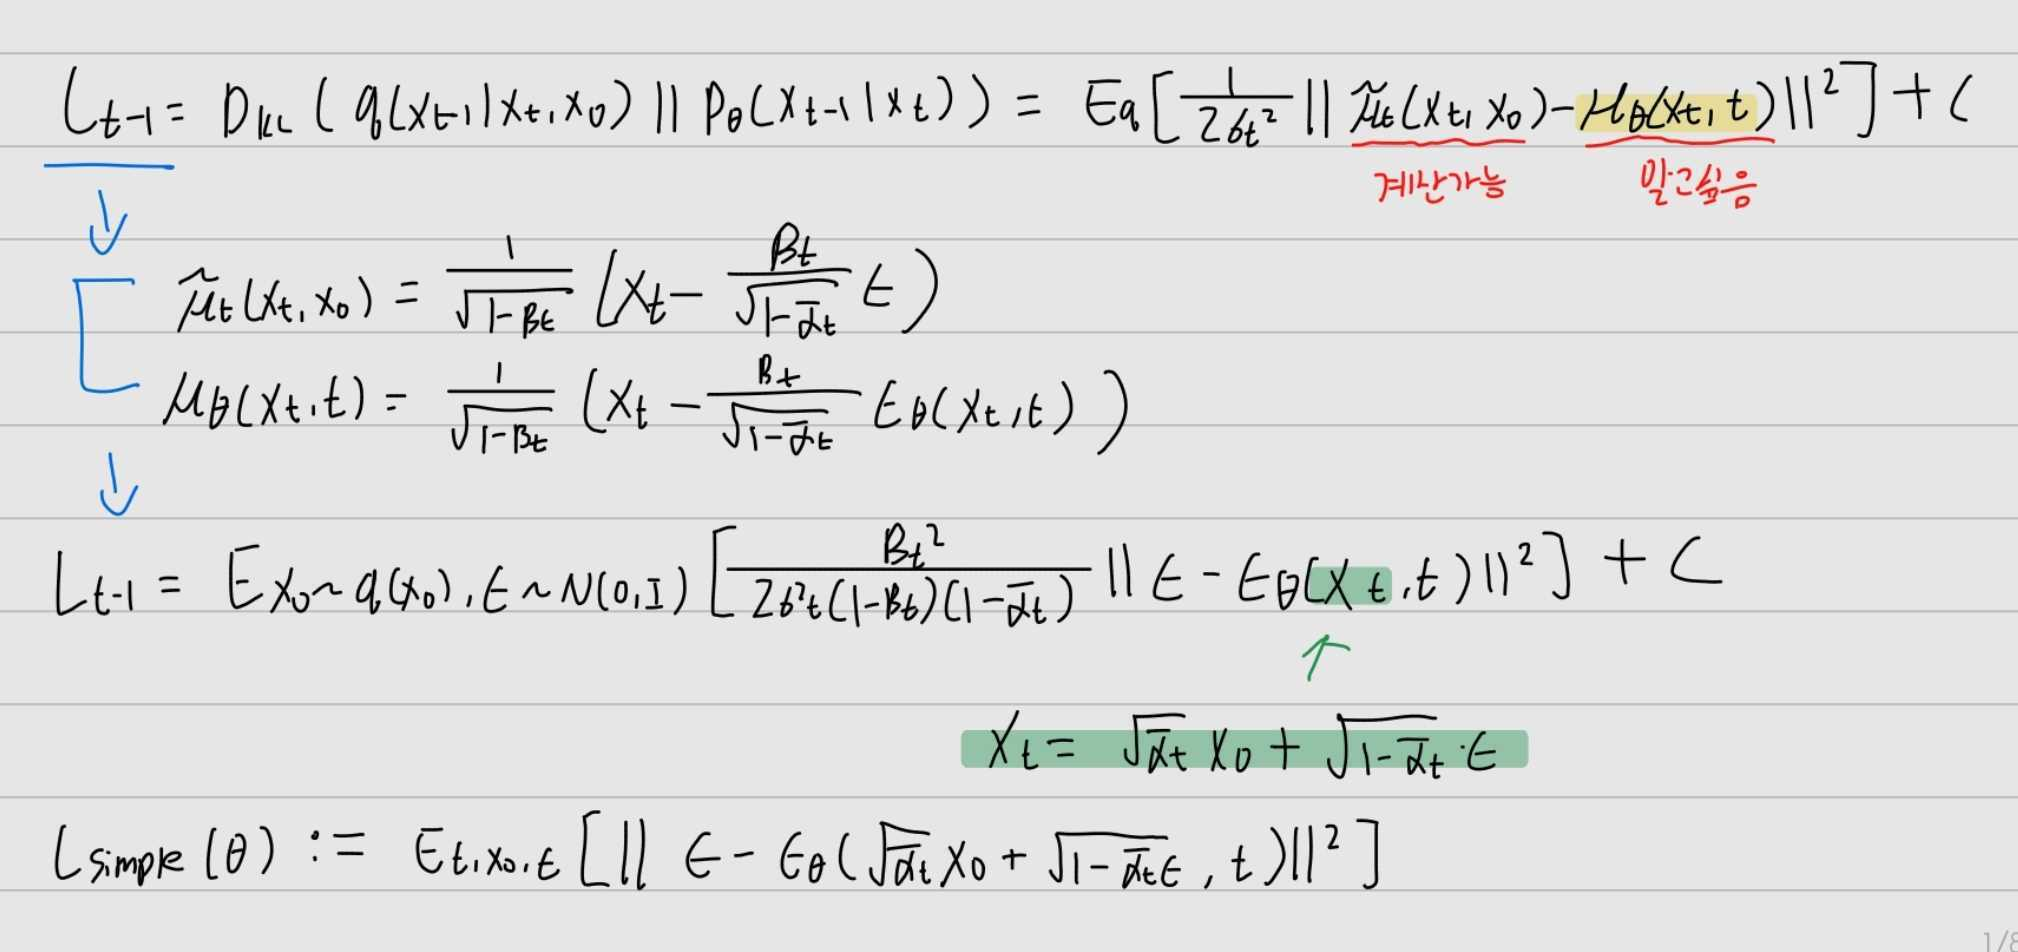 L_{t-1} = D_{KL} ( q(x_{t-1}|x_t, x_0) || p_θ(x_{t-1}|x_t) ) = E_q [ \frac{1}{2σ_t^2} || \tilde{μ}_t(x_t, x_0) - μ_θ(x_t, t) ||^2 ] + C
계산가능 알고싶음
\tilde{μ}_t(x_t, x_0) = \frac{1}{\sqrt{1-β_t}} ( x_t - \frac{β_t}{\sqrt{1-\bar{α}_t}} ε )
μ_θ(x_t, t) = \frac{1}{\sqrt{1-β_t}} ( x_t - \frac{β_t}{\sqrt{1-\bar{α}_t}} ε_θ(x_t, t) )
L_{t-1} = E_{x_0~q(x_0), ε~N(0,I)} [ \frac{β_t^2}{2σ^2_t(1-β_t)(1-\bar{α}_t)} || ε - ε_θ(x_t, t) ||^2 ] + C
x_t = \sqrt{\bar{α}_t} x_0 + \sqrt{1-\bar{α}_t} · ε
L_{simple}(θ) := E_{t, x_0, ε} [ || ε - ε_θ(\sqrt{\bar{α}_t} x_0 + \sqrt{1-\bar{α}_t} ε, t) ||^2 ]
1/8